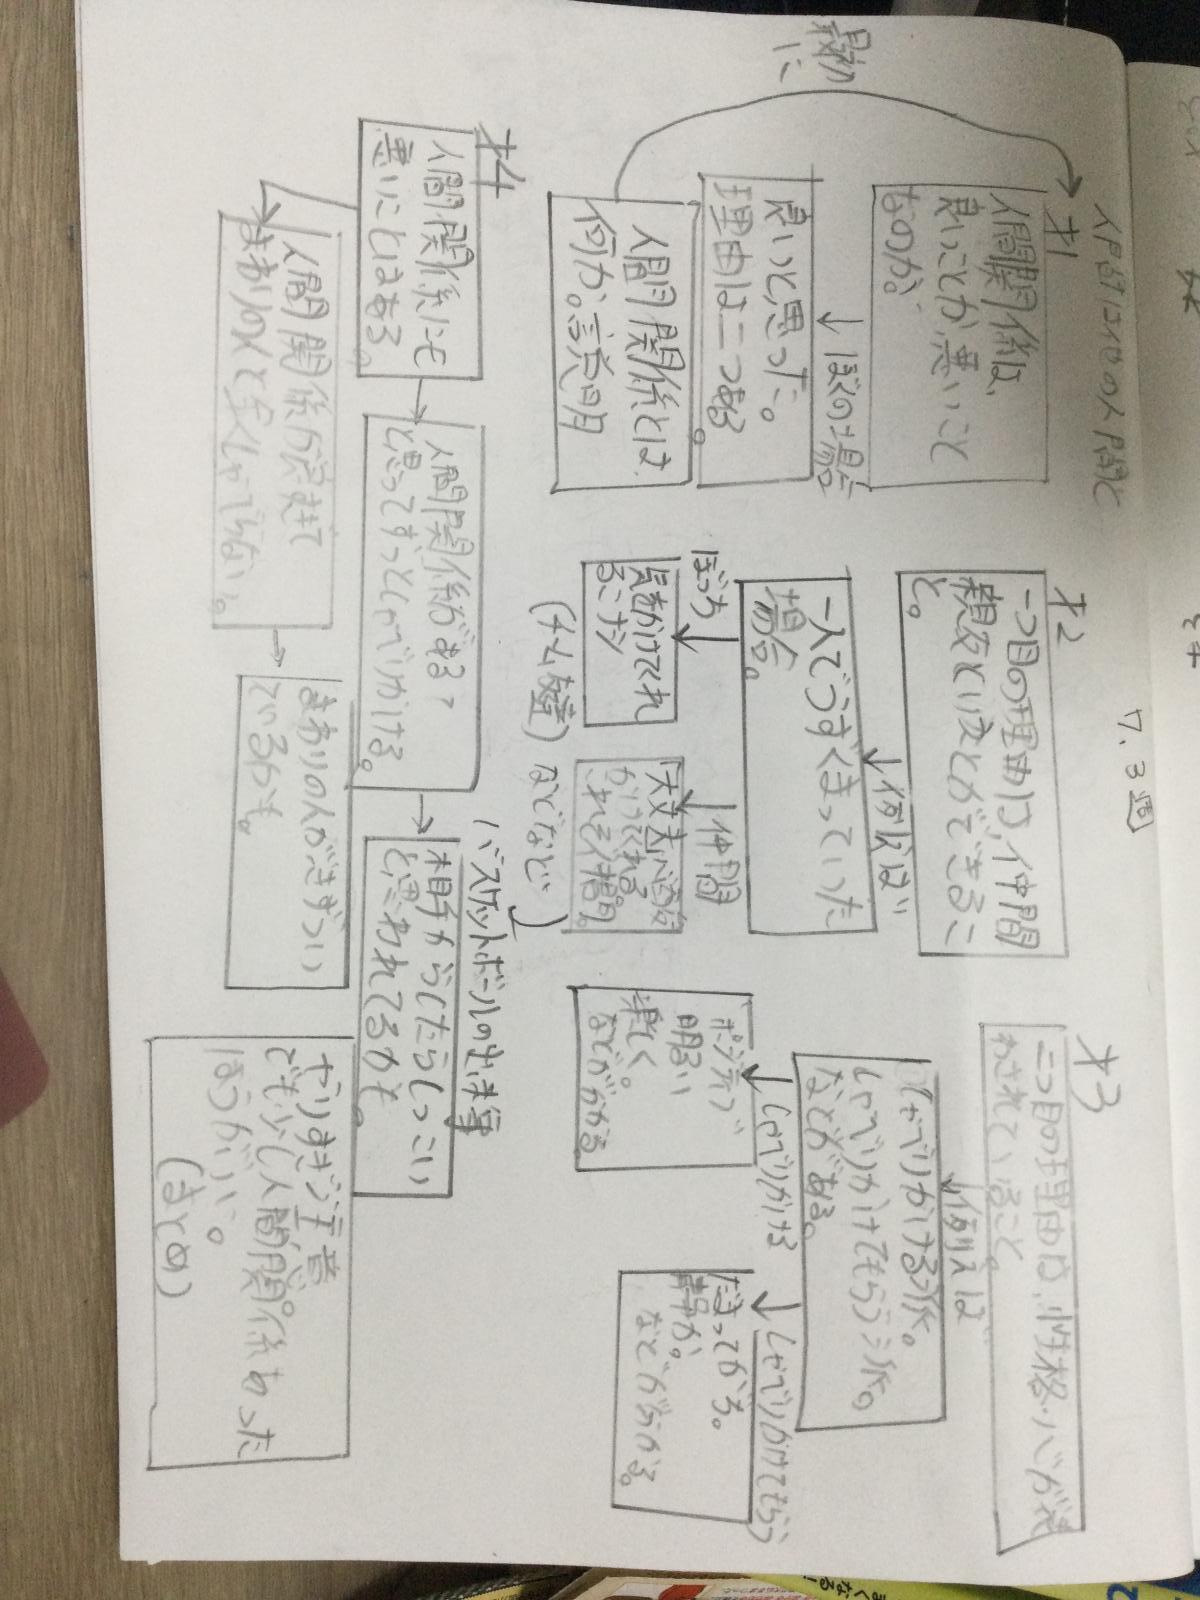 7.3週
才1
人間関係は、
良いことか悪いこと
なのか。
↓ぼくの場合
良いと思った。
理由は二つある。
人間関係とは、
何か。説明
最初
に
才2
一つ目の理由は、仲間
親友といったとができるこ
と。
↓例えば
一人でうずくまっていた
場合。
ぼっち
↓
気をかけてくれ
↓仲間
「大丈夫」
(チーム友達)などなど
バスケットボールの出来事
才3
二つ目の理由は、性格・心が表
わされていること。
↓例えば
しゃべりかける派。
しゃべりかけてもらう派。
などがある。
↓しゃべりかける
ポジティブ
明るい
楽しく。
などがわかる
↓しゃべりかけてもらう
だまってがち。
静か。
などが分かる。
才4
人間関係にも
悪いことはある。
人間関係がある
と思ってずっとしゃべりかける。
相手からしたらしつこい
と思われてるかも。
人間関係が深すぎて
まわりの人としゃべらない。
まわりの人がきずつい
ているかも。
やりすぎ注意
でも少し人間関係あった
ほうがいい。
(まとめ)